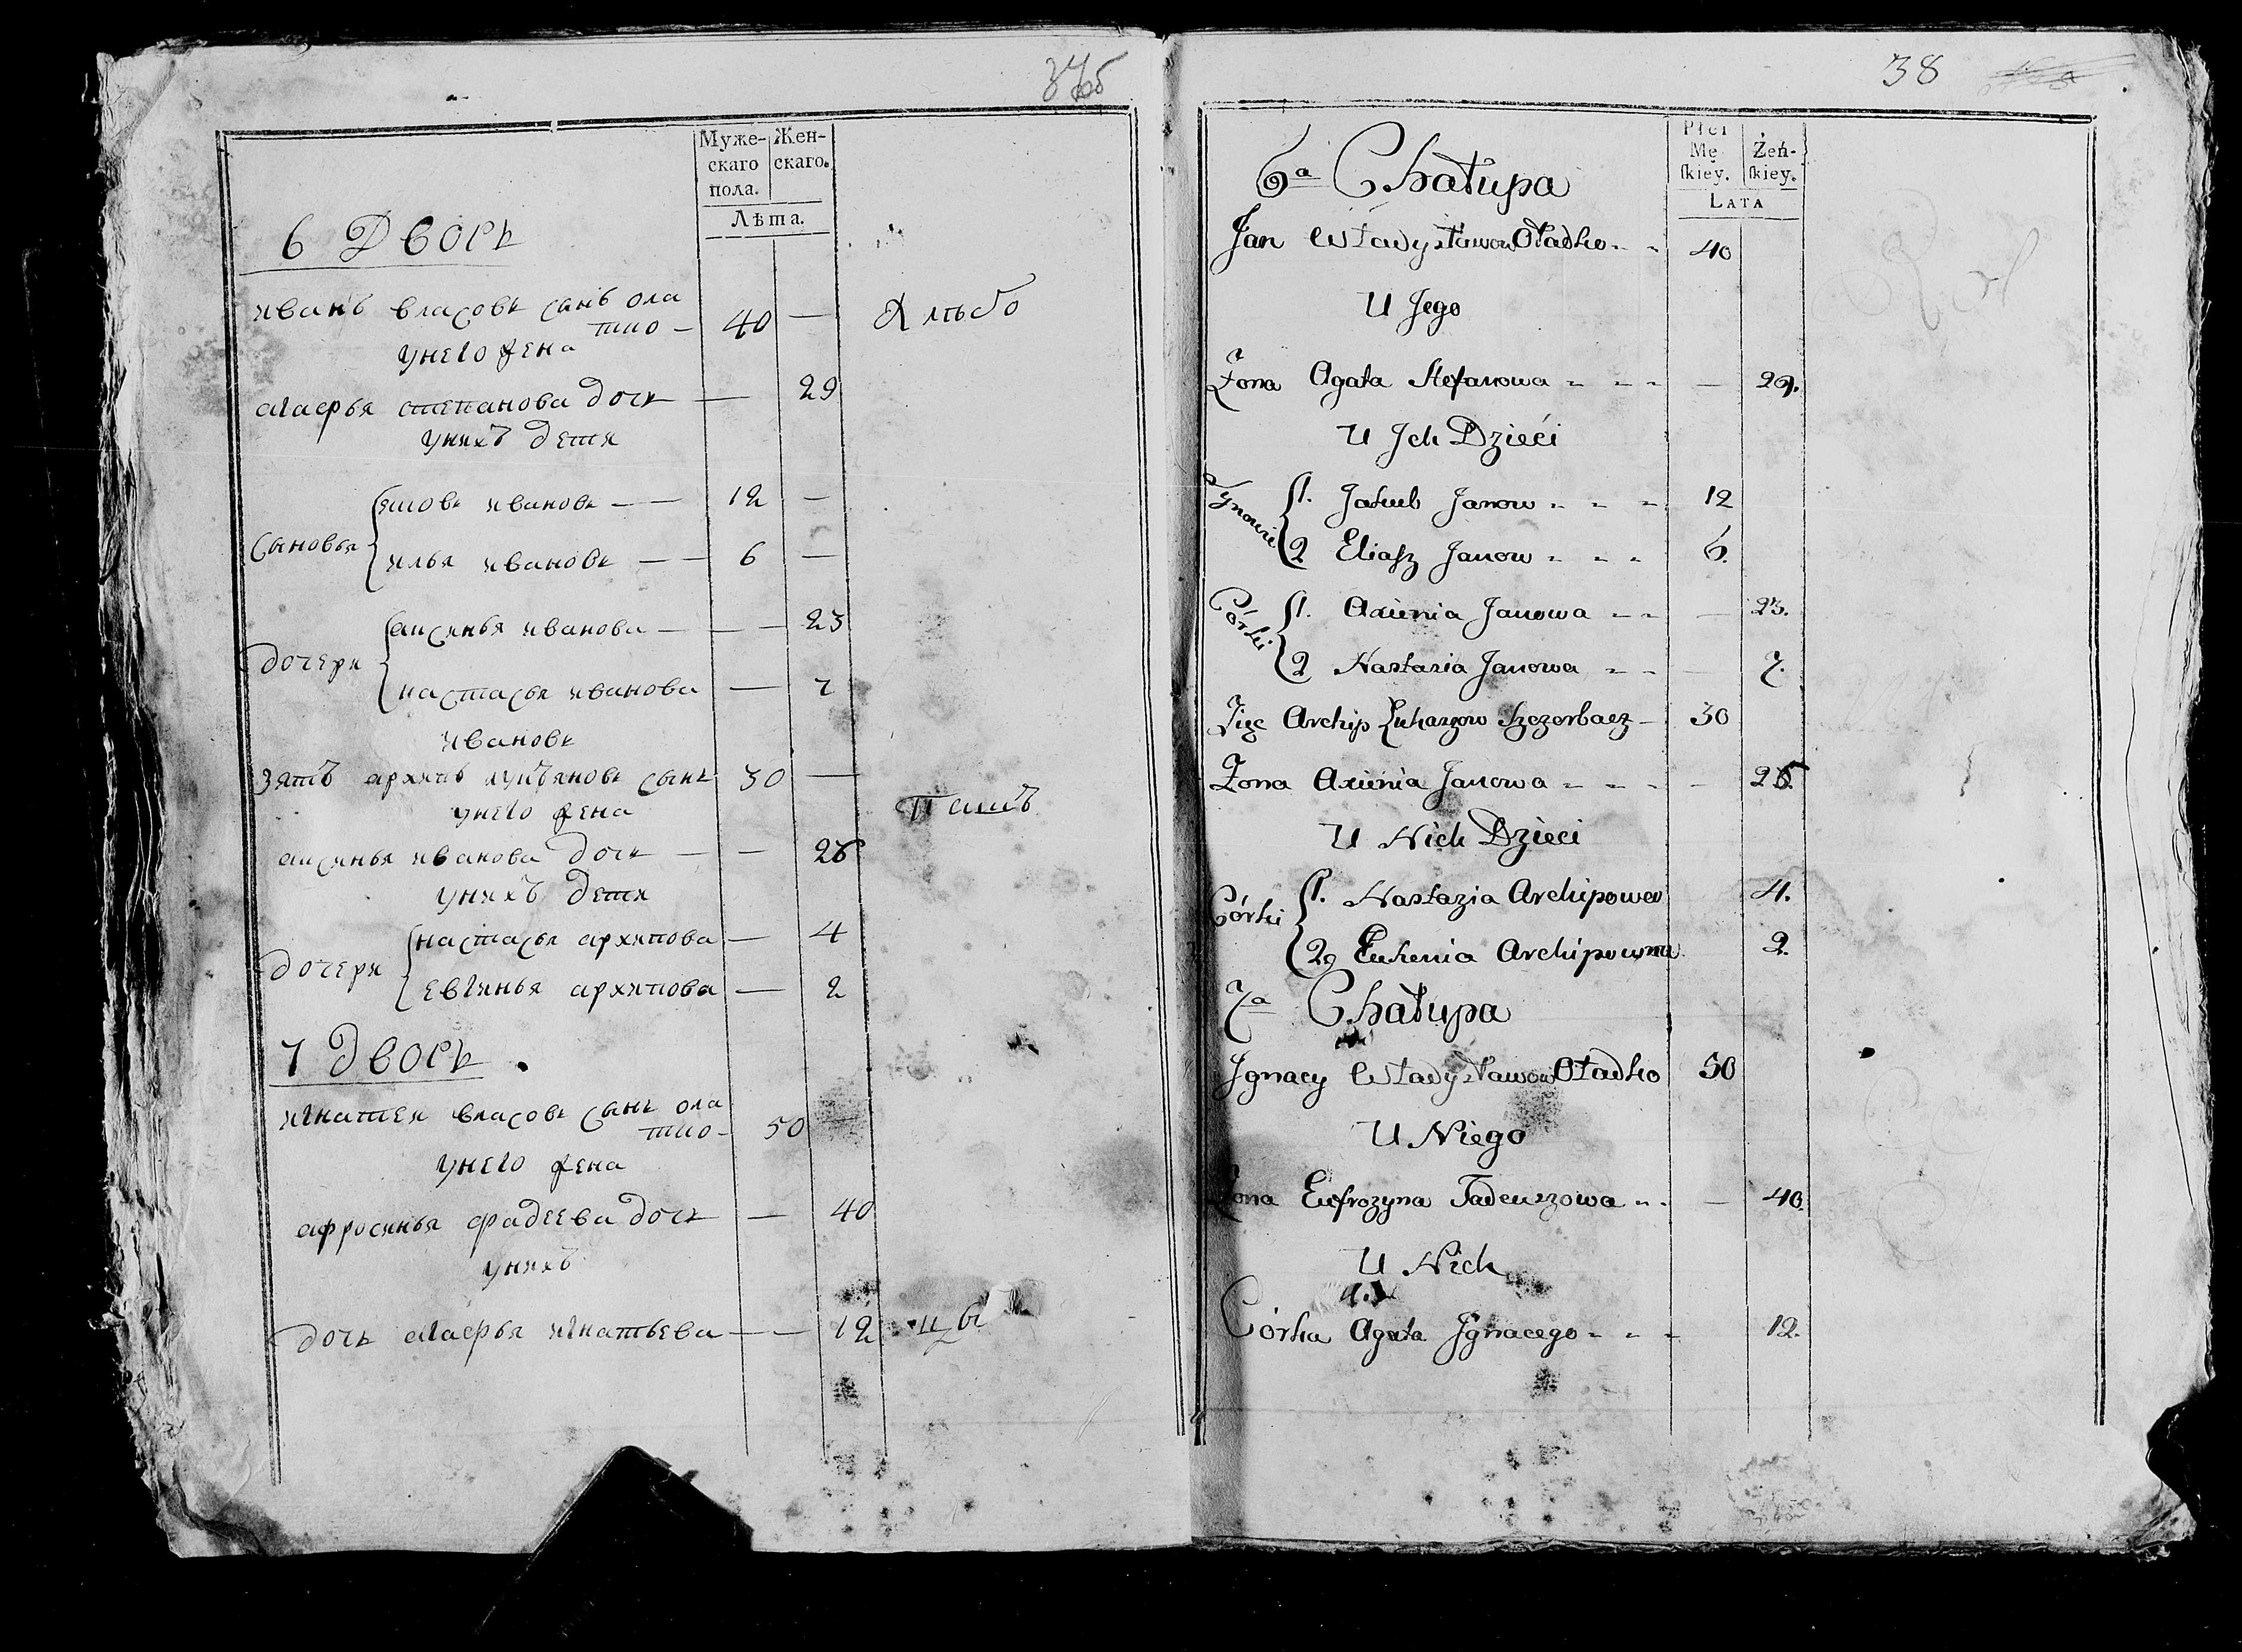 37об
Муже- Жен-
скаго скаго.
пола.
Лѣта.
6 Дворъ
иванъ власовъ сынъ ола
тко — 40 —
унего жена
агафья степанова дочь — 29
унихъ дети
Сыновья
яковъ ивановъ — — 12 —
илья ивановъ — — 6 —
дочери
аксинья иванова — — — 23
настасья иванова — 7
ивановъ
Зять архипъ лукьяновъ сынъ 30 —
унего жена
аксинья иванова дочь — — 26
унихъ дети
дочери
настасья архипова — 4
евгинья архипова — 2
7 Дворъ
игнатеи власовъ сынъ ола
тко — 50 —
унего жена
афросинья фадеева дочь — 40
унихъ
дочь агафья игнатьева — — 12
38
Płci
Mę Żeń-
ſkiey. ſkiey.
LATA
6a Chałupa
Jan Władysławow Oładko - - 40
U Jego
Żona Agata Stefanowa - - - — 29.
U Jch Dzieći
Synowie
1. Jakub Janow - - - 12
2 Eliaſz Janow - - - 6.
Córki
1. Axienia Janowa - - — 23.
2 Nastazia Janowa - - — 7.
Zięc Archip Łukaszow Szczerbacz - 30
Żona Axienia Janowa - - - — 26.
U Nich Dzieci
Córki
1. Nastazia Archipowa 4.
2 Eukenia Archipowna 2.
7a Chałupa
Jgnacy Władysławow Oładko 50
U Niego
Żona Eufrozyna Tadeuszowa - - — 40.
U Nich
Córka Agata Jgnacego - - - 12.